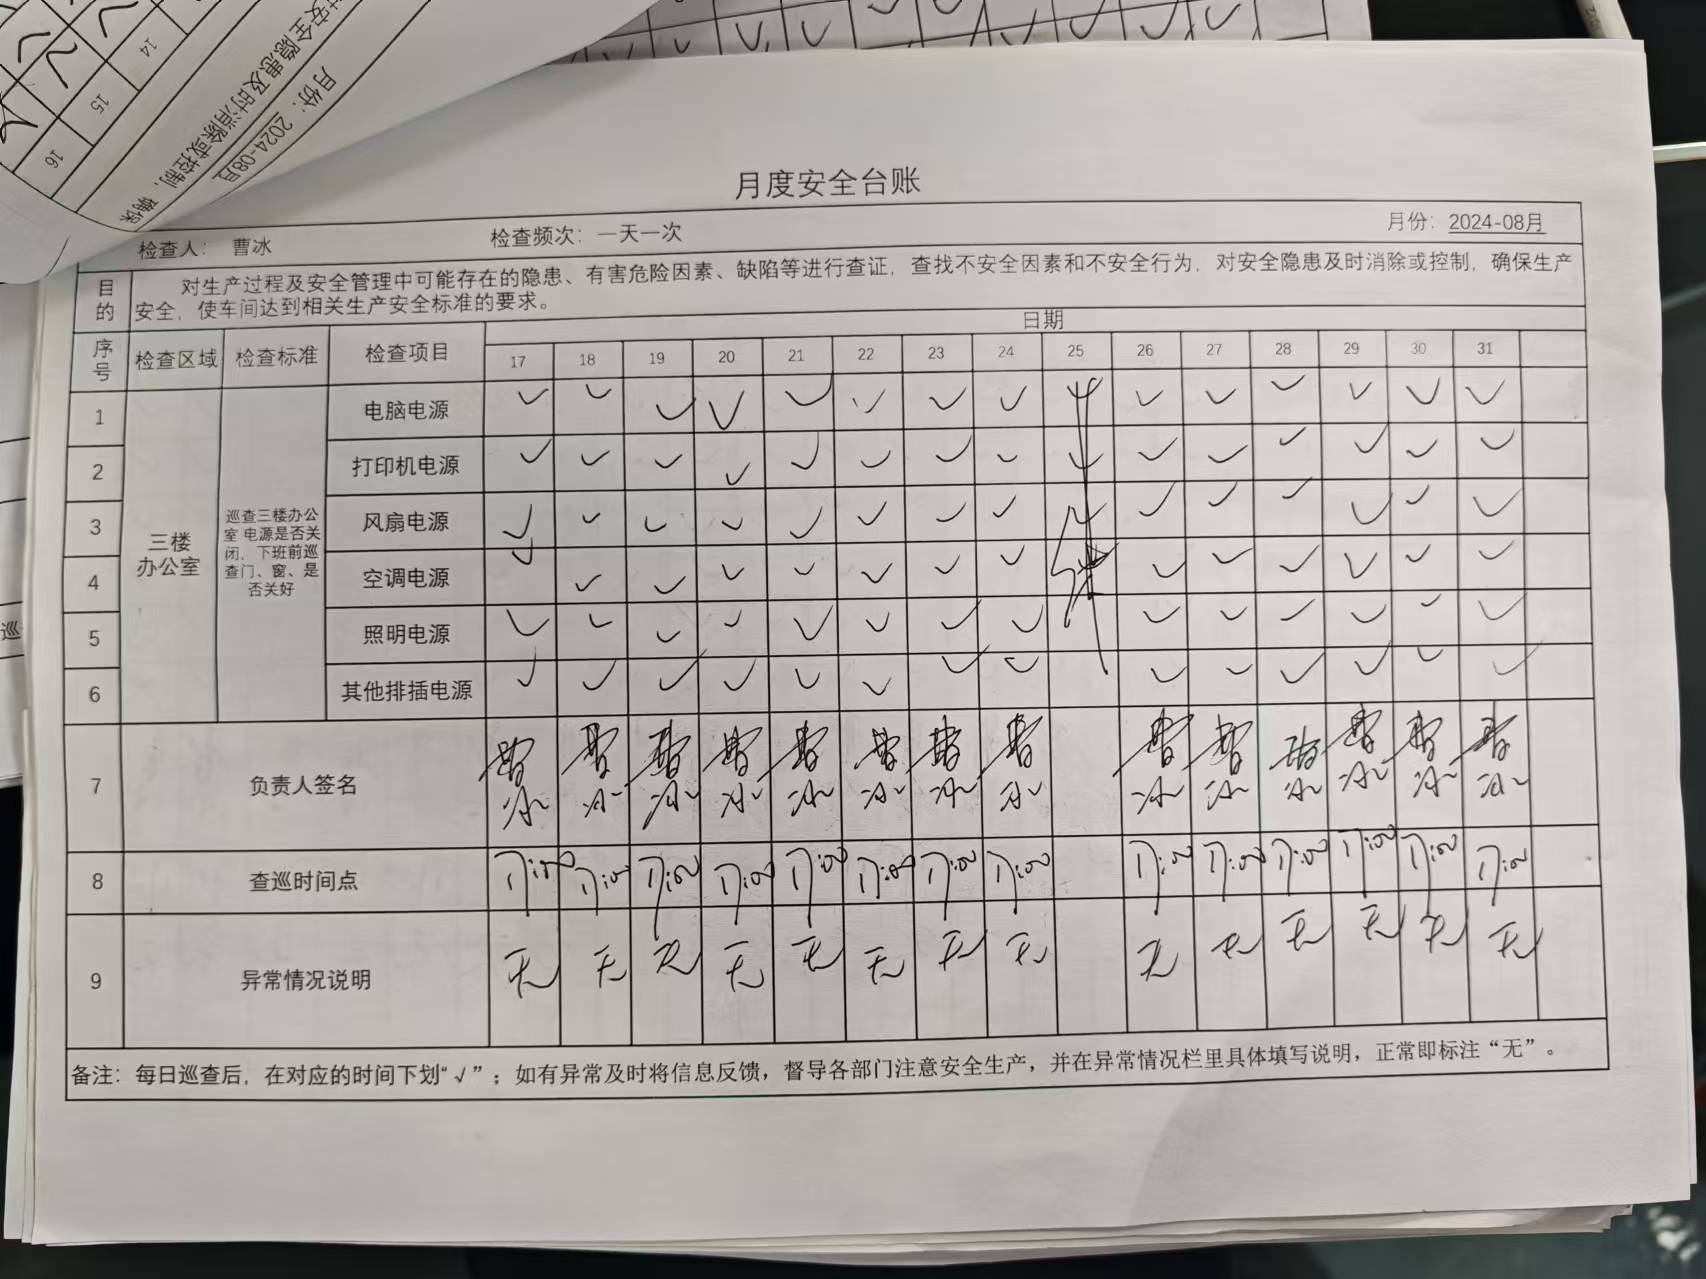 14
15
16
对安全隐患及时消除或控制，确保
月份：2024-08月
月度安全台账
检查人： 曹冰 检查频次：一天一次 月份：2024-08月
目的 对生产过程及安全管理中可能存在的隐患、有害危险因素、缺陷等进行查证，查找不安全因素和不安全行为，对安全隐患及时消除或控制，确保生产
安全，使车间达到相关生产安全标准的要求。
日期
序号 检查区域 检查标准 检查项目 17 18 19 20 21 22 23 24 25 26 27 28 29 30 31
1 电脑电源 ✓ ✓ ✓ ✓ ✓ ✓ ✓ ✓ ✓ ✓ ✓ ✓ ✓ ✓ ✓
2 打印机电源 ✓ ✓ ✓ ✓ ✓ ✓ ✓ ✓ ✓ ✓ ✓ ✓ ✓ ✓ ✓
3 风扇电源 ✓ ✓ ✓ ✓ ✓ ✓ ✓ ✓ ✓ ✓ ✓ ✓ ✓ ✓ ✓
三楼
办公室
巡查三楼办公
室 电源是否关
闭，下班前巡
查门、窗、是
否关好
4 空调电源 ✓ ✓ ✓ ✓ ✓ ✓ ✓ ✓ ✓ ✓ ✓ ✓ ✓ ✓
5 照明电源 ✓ ✓ ✓ ✓ ✓ ✓ ✓ ✓ ✓ ✓ ✓ ✓ ✓ ✓
6 其他排插电源 ✓ ✓ ✓ ✓ ✓ ✓ ✓ ✓ ✓ ✓ ✓ ✓ ✓ ✓
7 负责人签名 曹冰 曹冰 曹冰 曹冰 曹冰 曹冰 曹冰 曹冰 曹冰 曹冰 曹冰 曹冰 曹冰 曹冰
8 查巡时间点 17:00 17:00 17:00 17:00 17:00 17:00 17:00 17:00 17:00 17:00 17:00 17:00 17:00 17:00
9 异常情况说明 无 无 无 无 无 无 无 无 无 无 无 无 无 无
备注：每日巡查后，在对应的时间下划“√”；如有异常及时将信息反馈，督导各部门注意安全生产，并在异常情况栏里具体填写说明，正常即标注“无”。